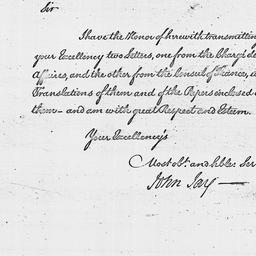 Sir
I have the Honor of herewith transmitting
your Excellency two Letters, one from the Chargé des
Affaires, and the other from the Consul of France, with
Translations of them and of the Papers inclosed
them — and am with great Respect and Esteem.
Your Excellency's
Most obt. and hble: Ser
John Jay —